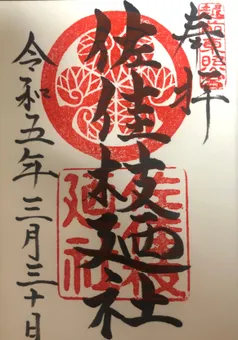 越前東照宮
奉拝
佐佳枝廼社
佐佳枝
廼社
令和五年三月三十日